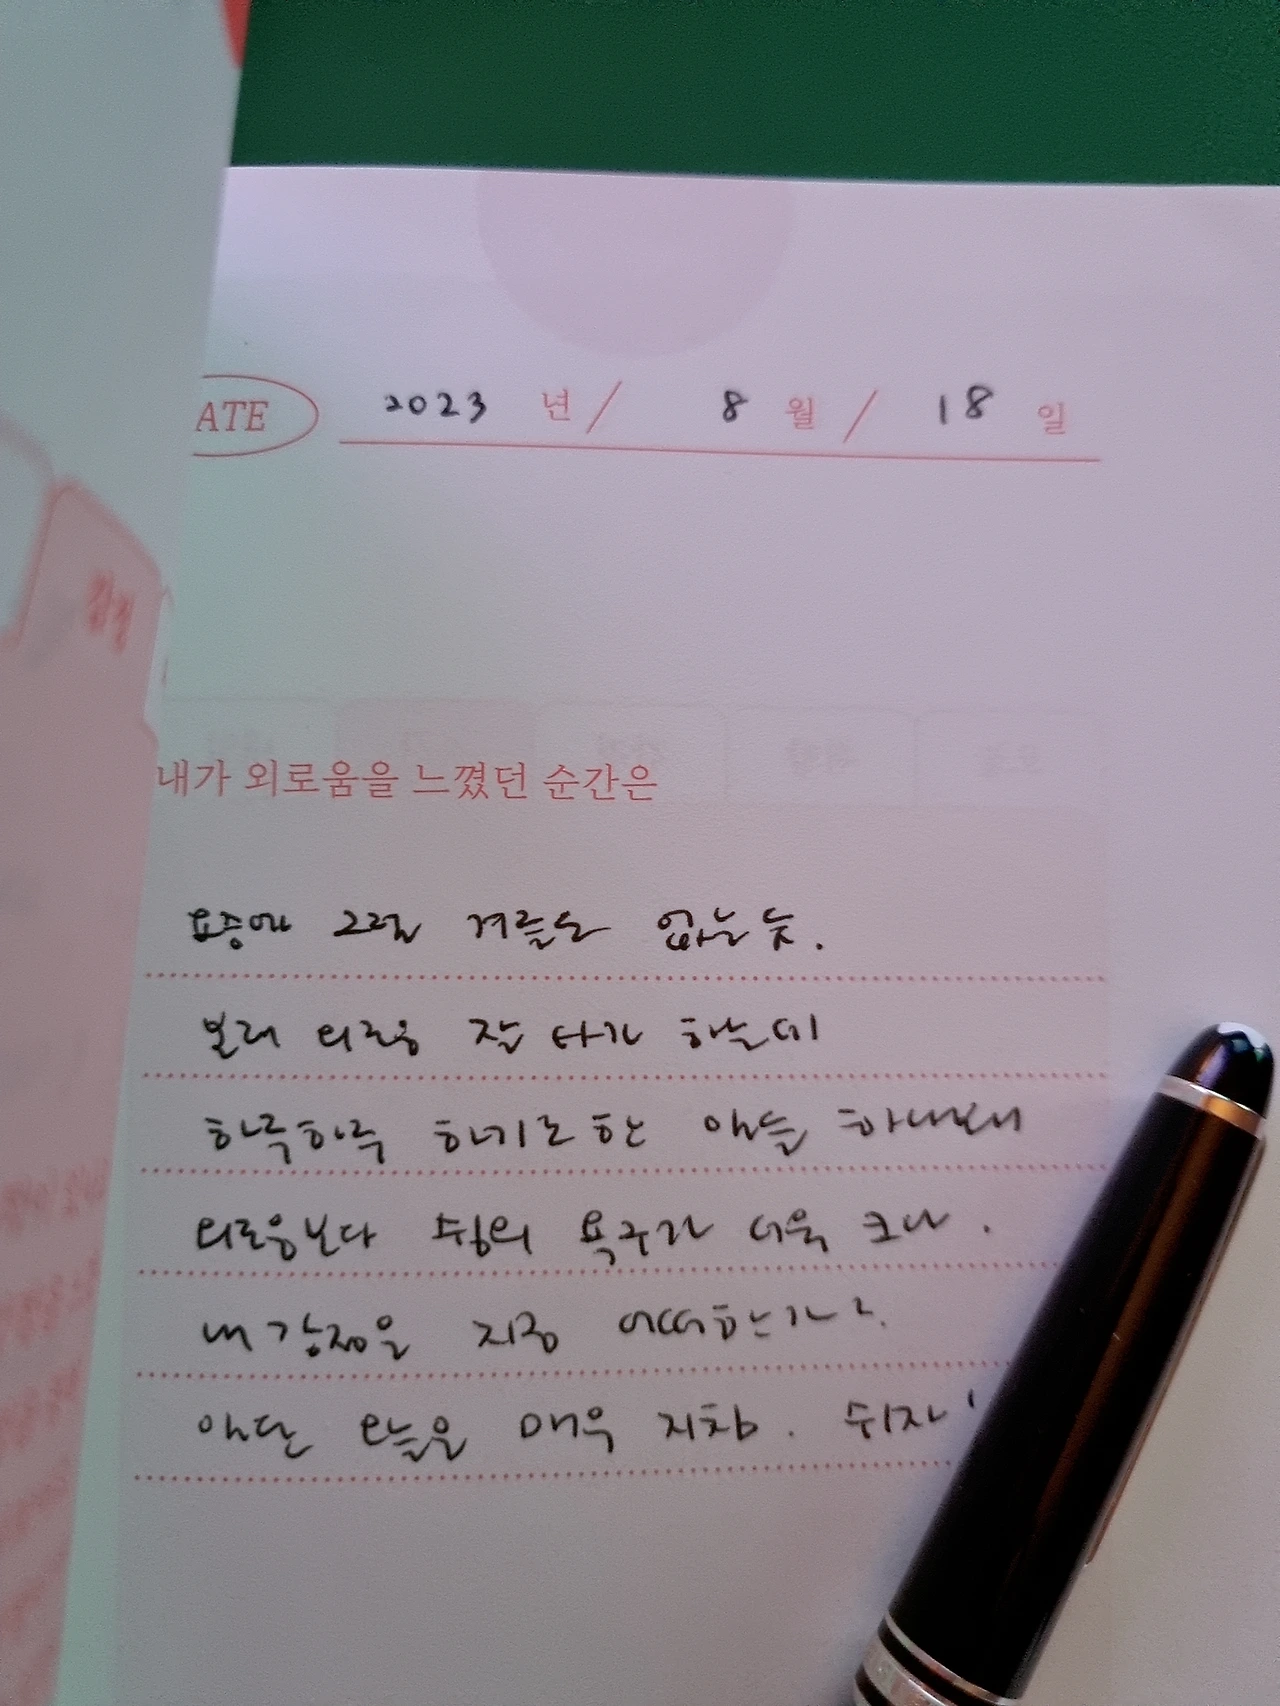 ATE 2023 년 / 8 월 / 18 일
감정
내가 외로움을 느꼈던 순간은
요즘에 그럴 겨를도 없는 듯.
본래 외로움 잘 타기 하는데
하루하루 하기로 한 일을 하다보니
외로움보다 쉼의 욕구가 더욱 크다.
내 감정은 지금 어떠한가?
일단 오늘은 매우 지침. 쉬자!